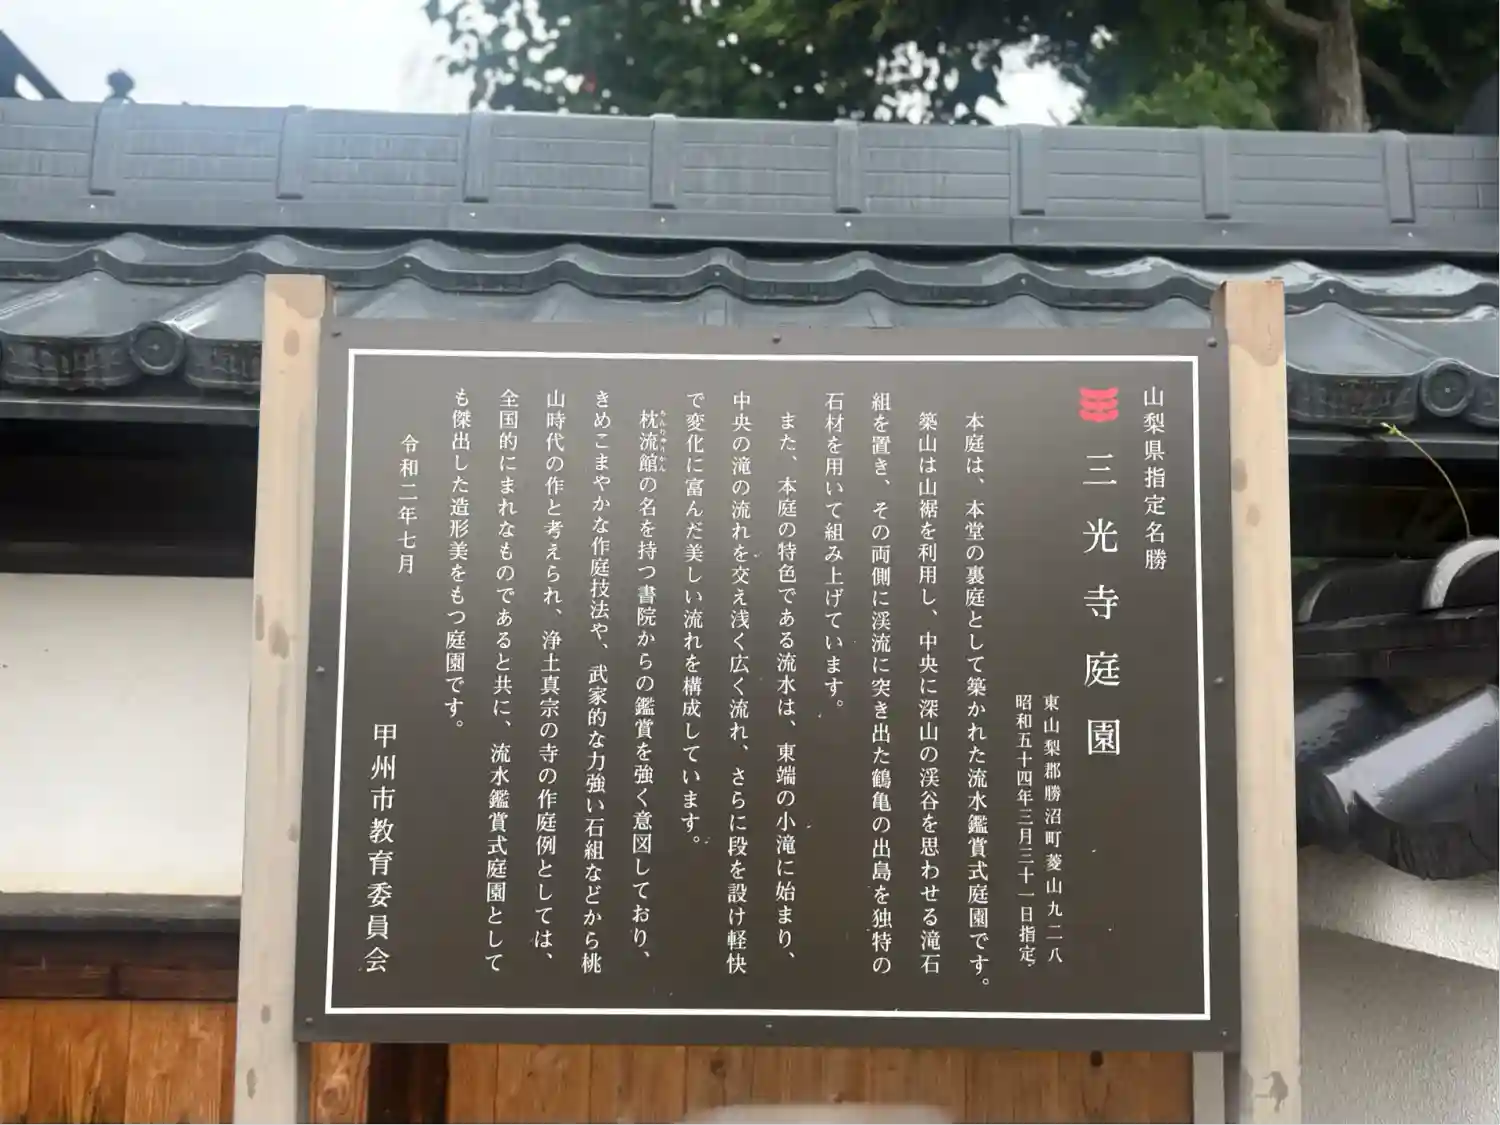 山梨県指定名勝
三光寺庭園
東山梨郡勝沼町菱山九二八
昭和五十四年三月三十一日指定
本庭は、本堂の裏庭として築かれた流水鑑賞式庭園です。
築山は山裾を利用し、中央に深山の渓谷を思わせる滝石
組を置き、その両側に渓流に突き出た鶴亀の出島を独特の
石材を用いて組み上げています。
また、本庭の特色である流水は、東端の小滝に始まり、
中央の滝の流れを交え浅く広く流れ、さらに段を設け軽快
で変化に富んだ美しい流れを構成しています。
枕流館の名を持つ書院からの鑑賞を強く意図しており、
ちんりゅうかん
きめこまやかな作庭技法や、武家的な力強い石組などから桃
山時代の作と考えられ、浄土真宗の寺の作庭例としては、
全国的にまれなものであると共に、流水鑑賞式庭園として
も傑出した造形美をもつ庭園です。
令和二年七月
甲州市教育委員会